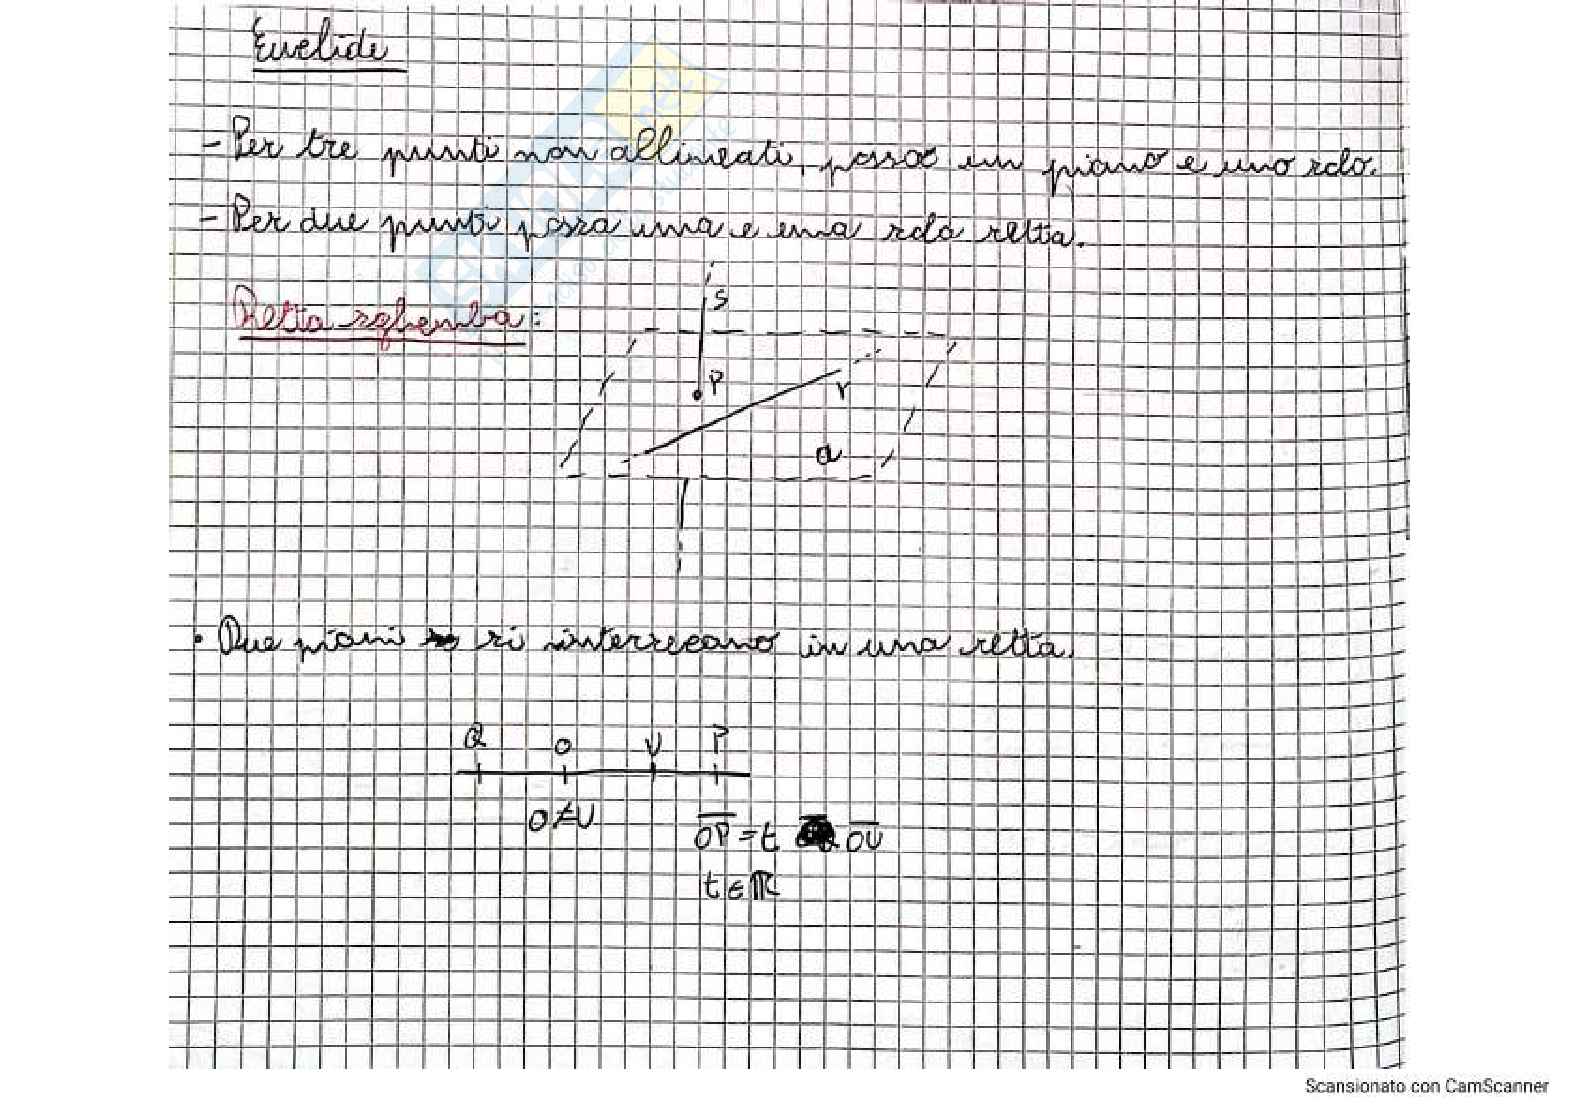 Euclide
- Per tre punti non allineati, passa un piano e uno solo.
- Per due punti passa una e una sola retta.
Retta sghemba:
S
P
r
a
• Due piani si intersecano in una retta.
Q O U P
O≠U
OP = t OU
t ∈ ℝ
Scansionato con CamScanner